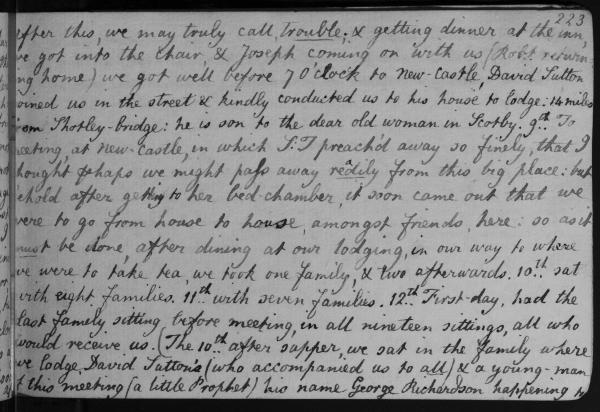 223
after this, we may truly call, trouble; & getting dinner at the inn,
we got into the chair, & Joseph coming on with us (Robt. return-
ing home) we got well before 7 O'clock to New-castle, David Sutton
joined us in the street & kindly conducted us to his house to lodge: 14 miles
from Shotley-bridge: he is son to the dear old woman in Scotby. 9th. To
meeting, at New-castle, in which S:T preach'd away so finely, that I
thought phaps we might pass away readily from this big place: but
behold after getting to her bed-chamber it soon came out that we
were to go from house to house, amongst friends, here: so as it
must be done, after dining at our lodging, in our way to where
we were to take tea, we took one family, & two afterwards. 10th. sat
with eight families. 11th. with seven families. 12th. First-day, had the
last family sitting before meeting, in all nineteen sittings, all who
would receive us. (The 10th. after supper, we sat in the family where
we lodge, David Sutton's (who accompanied us to all) & a young-man
of this meeting (a little Prophet) his name George Richardson happening to